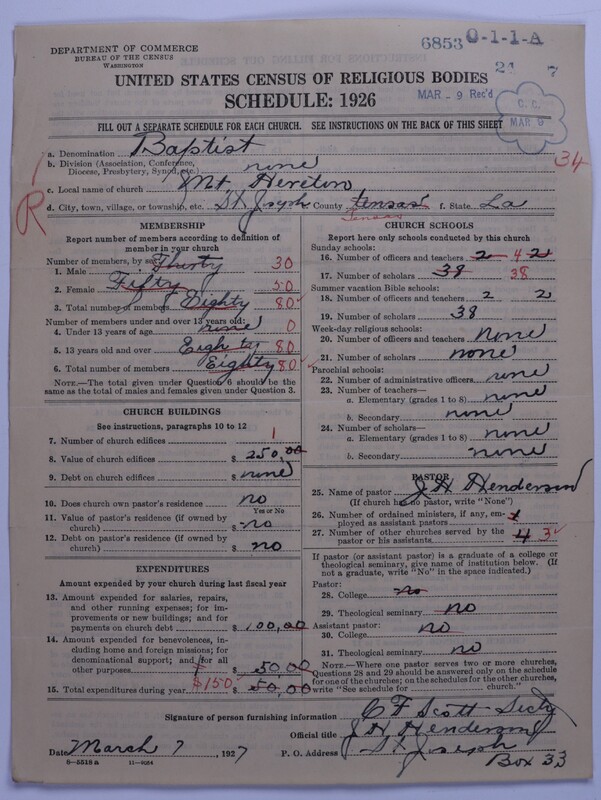 DEPARTMENT OF COMMERCE
BUREAU OF THE CENSUS
WASHINGTON
6853 0-1-1-A
24 7
UNITED STATES CENSUS OF RELIGIOUS BODIES
MAR - 9 Rec'd
SCHEDULE: 1926
C. C.
MAR 9
FILL OUT A SEPARATE SCHEDULE FOR EACH CHURCH. SEE INSTRUCTIONS ON THE BACK OF THIS SHEET
a. Denomination Baptist
b. Division (Association, Conference, Diocese, Presbytery, Synod, etc.) none
34
c. Local name of church Mt Hereton
R
d. City, town, village, or township, etc. St Joseph County Tensas f. State La
Tensas
MEMBERSHIP
Report number of members according to definition of
member in your church
Number of members, by sex:
1. Male Thirty 30
2. Female Fifty 50
3. Total number of members Eighty 80
Number of members under and over 13 years old:
4. Under 13 years of age none 0
5. 13 years old and over Eighty 80
6. Total number of members Eighty 80
NOTE.—The total given under Question 6 should be the
same as the total of males and females given under Question 3.
CHURCH BUILDINGS
See instructions, paragraphs 10 to 12
7. Number of church edifices 1
8. Value of church edifices $ 250.00
9. Debt on church edifices $ none
10. Does church own pastor's residence? no
Yes or No
11. Value of pastor's residence (if owned by
church) $ no
12. Debt on pastor's residence (if owned by
church) $ no
EXPENDITURES
Amount expended by your church during last fiscal year
13. Amount expended for salaries, repairs,
and other running expenses; for im-
provements or new buildings; and for
payments on church debt $ 100,00
14. Amount expended for benevolences,
including home and foreign missions; for
denominational support; and for all
other purposes $ 50.00
$150
15. Total expenditures during year $ 50,00
CHURCH SCHOOLS
Report here only schools conducted by this church
Sunday schools:
16. Number of officers and teachers 2 4 2
17. Number of scholars 38 38
Summer vacation Bible schools:
18. Number of officers and teachers 2 2
19. Number of scholars 38
Week-day religious schools:
20. Number of officers and teachers none
21. Number of scholars none
Parochial schools:
22. Number of administrative officers none
23. Number of teachers—
a. Elementary (grades 1 to 8) none
b. Secondary none
24. Number of scholars—
a. Elementary (grades 1 to 8) none
b. Secondary none
PASTOR
25. Name of pastor J H Henderson
(If church has no pastor, write "None")
26. Number of ordained ministers, if any, em-
ployed as assistant pastors
27. Number of other churches served by the
pastor or his assistants 4 3
If pastor (or assistant pastor) is a graduate of a college or
theological seminary, give name of institution below. (If
not a graduate, write "No" in the space indicated.)
Pastor:
28. College no
29. Theological seminary no
Assistant pastor:
30. College no
31. Theological seminary no
NOTE.—Where one pastor serves two or more churches,
Questions 28 and 29 should be answered only on the schedule
for one of the churches; on the schedules for the other churches,
write "See schedule for church."
Signature of person furnishing information C F Scott Secty
Official title J H Henderson
Date March 7, 1927 P. O. Address St Joseph
Box 33
8-5518 a 11-9264